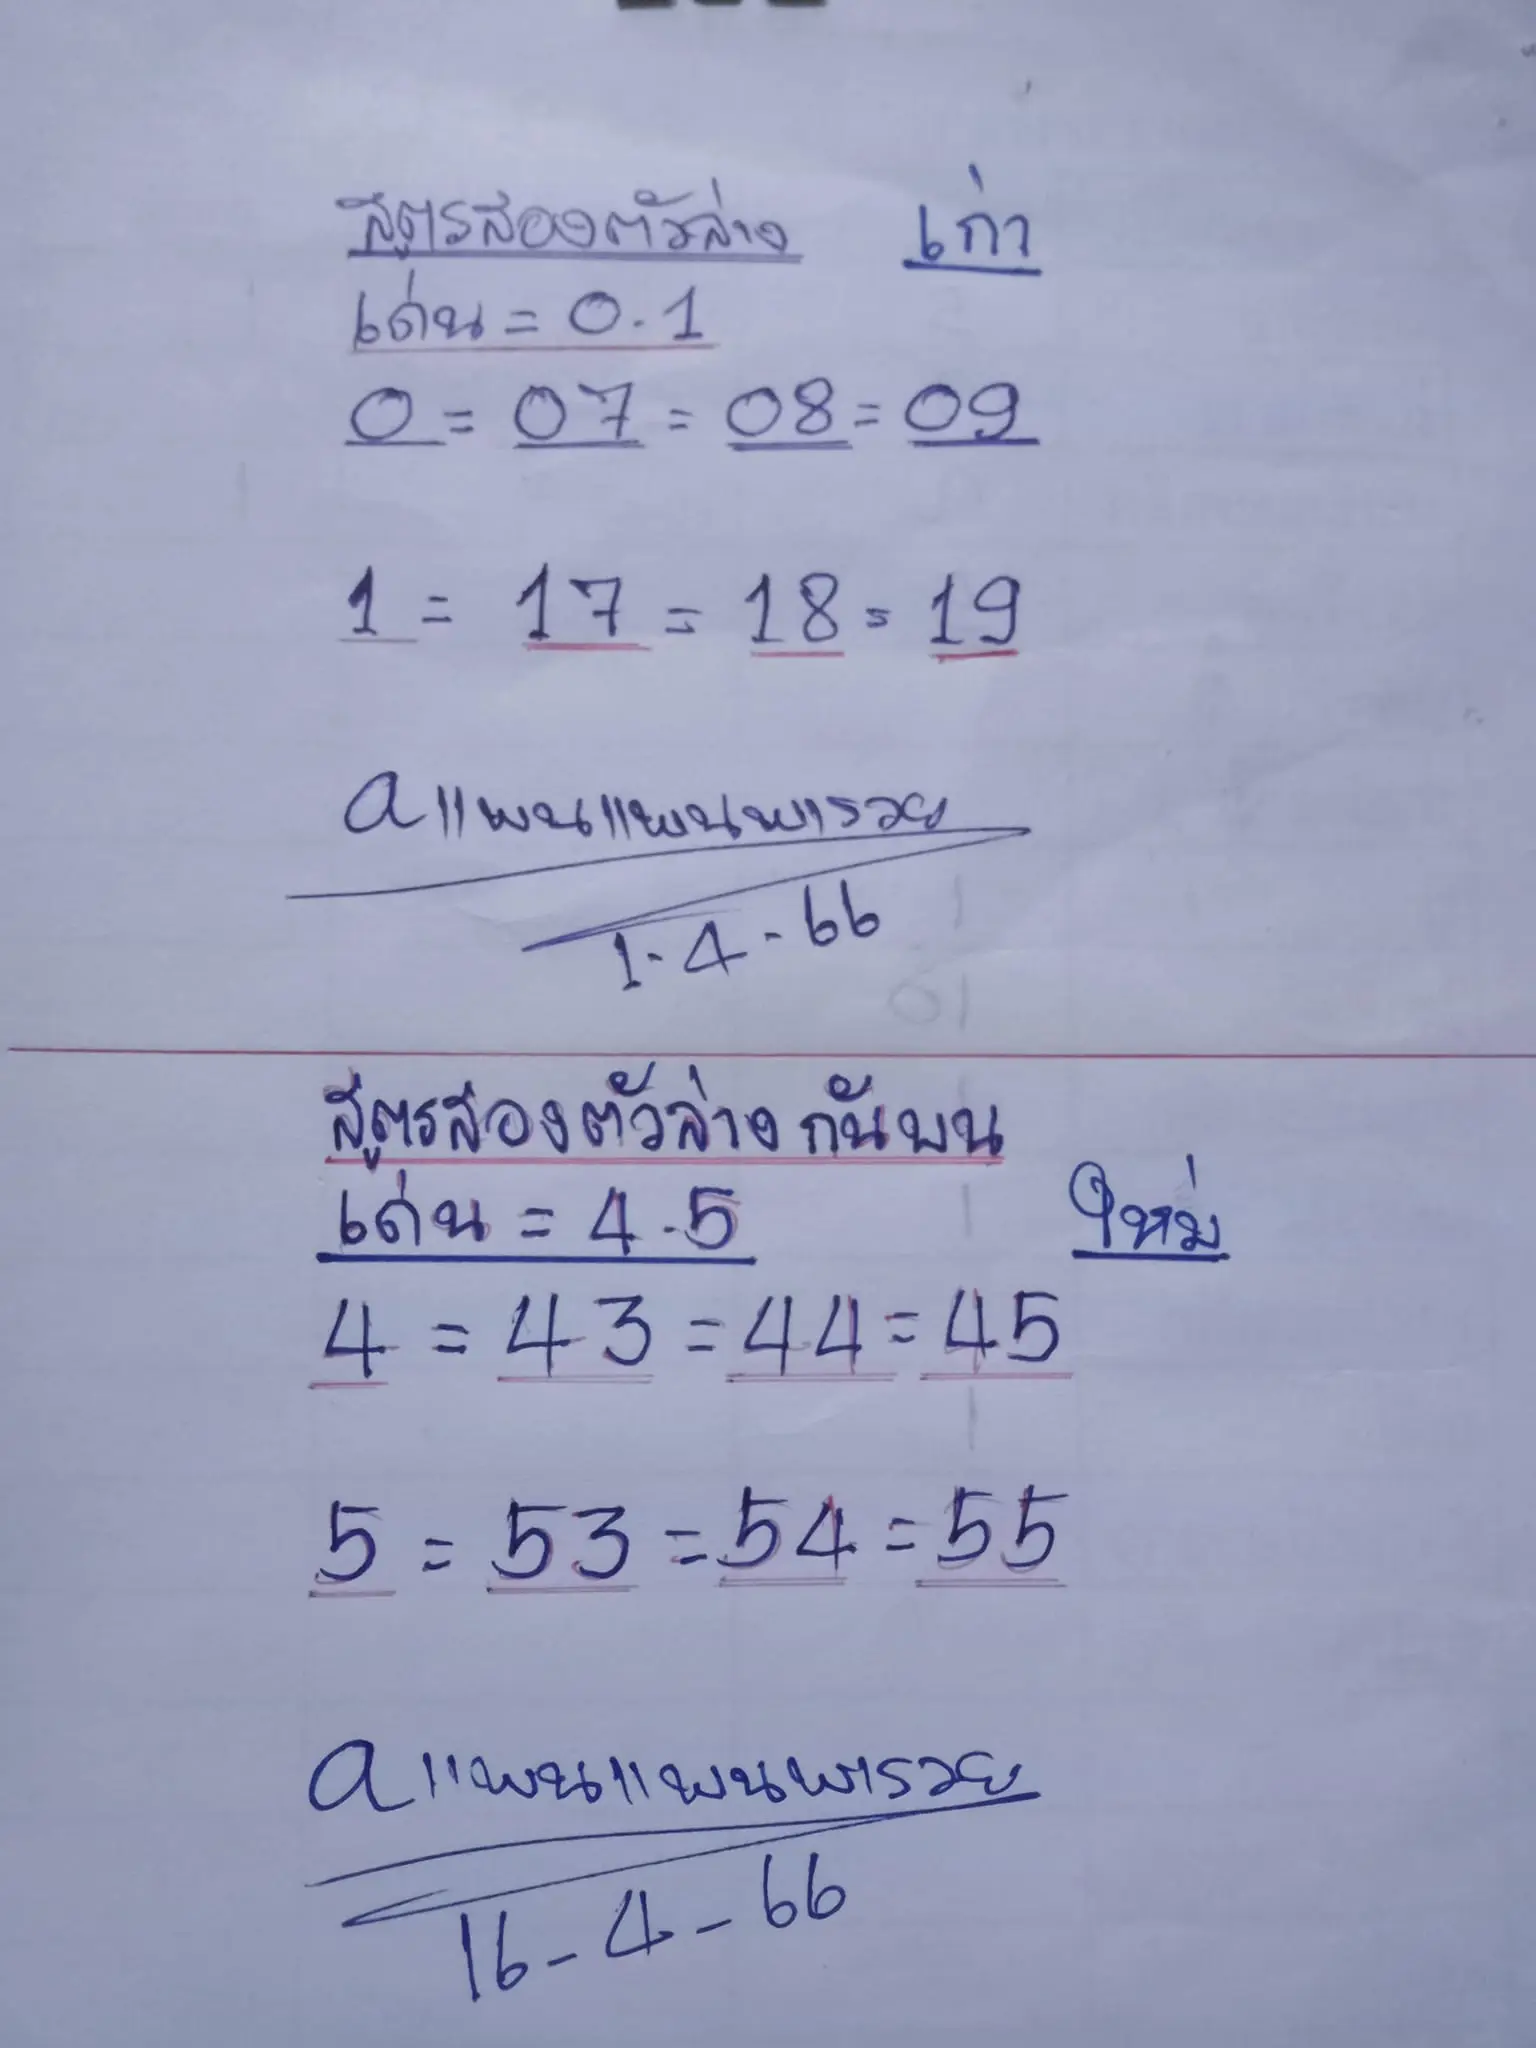 สูตรสองตัวล่าง เก่า
เด่น = 0.1
0 = 07 = 08 = 09
1 = 17 = 18 = 19
aแพนแพนพารวย
1-4-66
สูตรสองตัวล่าง กันบน
เด่น = 4.5 ใหม่
4 = 43 = 44 = 45
5 = 53 = 54 = 55
aแพนแพนพารวย
16-4-66